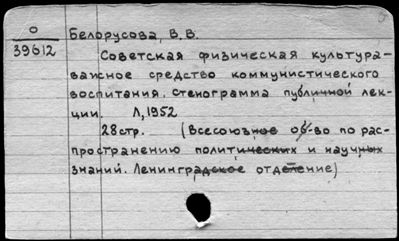 О
39612
Белорусова, В.В.
Советская физическая культура-
важное средство коммунистического
воспитания. Стенограмма публичной лек-
ции. Л, 1952
28 стр. (Всесоюзное об-во по рас-
пространению политических и научных
знаний. Ленинградское отделение)